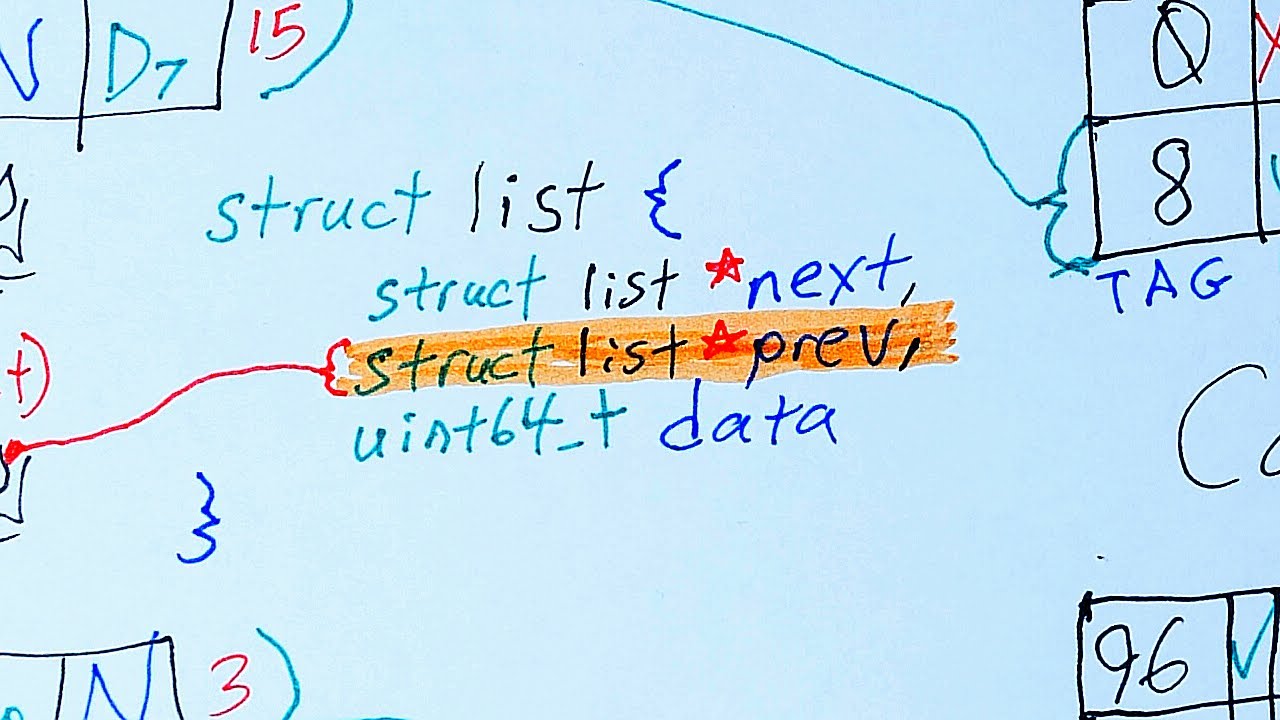 N D7 15)
0
8
TAG
struct list {
struct list *next,
struct list *prev,
uint64_t data
}
t)
C
N 3)
96 V